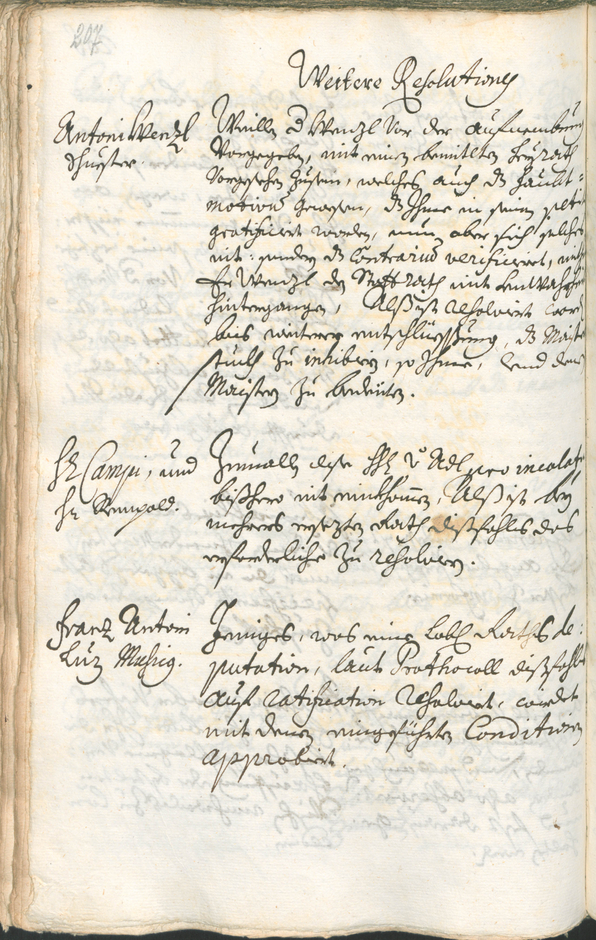 207
Weitere Resolutiones
Antoni Wenzl
Schuester.
Weillen d Wenzl vor der aufnembung
vorgegeben, mit einen bemitlten heyrath
vorgesehen zusein, welches auch dz haubt=
motivum gewesen, dz Ihme in seinen petito
gratificiert worden, nun aber sich solches
nit: sondern dz Contrarium verificiert, und
Er Wenzl den Stattrath mit hintergangen, Alß ist resolviert
bis weiterer entschliessung, dz Maister
stuck zu inhibirn, so Ihme, und denen
Maistern zu bedeuten.
Hr Campi, und
Hr
Zumalln dise
pro incolat
bißhero nit einkhomen, Alß ist bey
mehrers ersezten Rath dißfahls das
erforderliche zu resolvirn.
Franz Antoni
Luz
Jeniges, was eine Lobl Raths de=
putation, laut Prothocoll dißfahls
auf ratification resolviert, würdet
mit denen eingeführten Conditionen
approbiert.